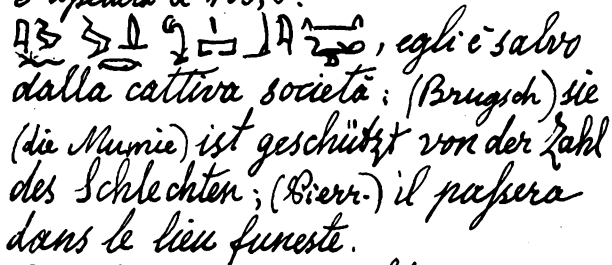 , egli è salvo
dalla cattiva società; (Brugsch) sie
(die Mumie) ist geschützt von der Zahl
des Schlechten; (Pierr.) il passera
dans le lieu funeste.